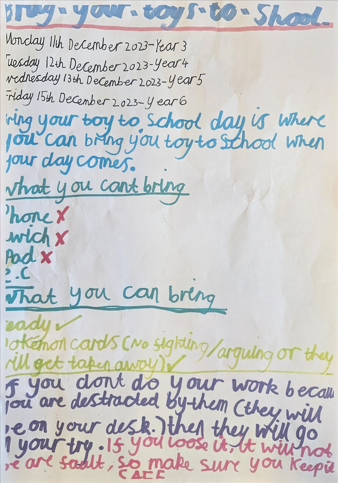 Bring-your-toys-to-Shool.
Monday 11th December 2023-Year 3
Tuesday 12th December 2023-Year 4
Wednesday 13th December 2023-Year 5
Friday 15th December 2023-Year 6
Bring your toy to School day is where
you can bring you toy to School when
your day comes.
What you cant bring
Phone X
Swich X
iPad X
E.C
What you can bring
Teady ✓
Pokémon cards (No fighting/arguing or they
will get taken away) ✓
If you dont do your work becau
you are destracled by them (they will
be on your desk.) then they will go
in your try. If you loose it, it will not
be are fault, so make sure you keep it
SAFE